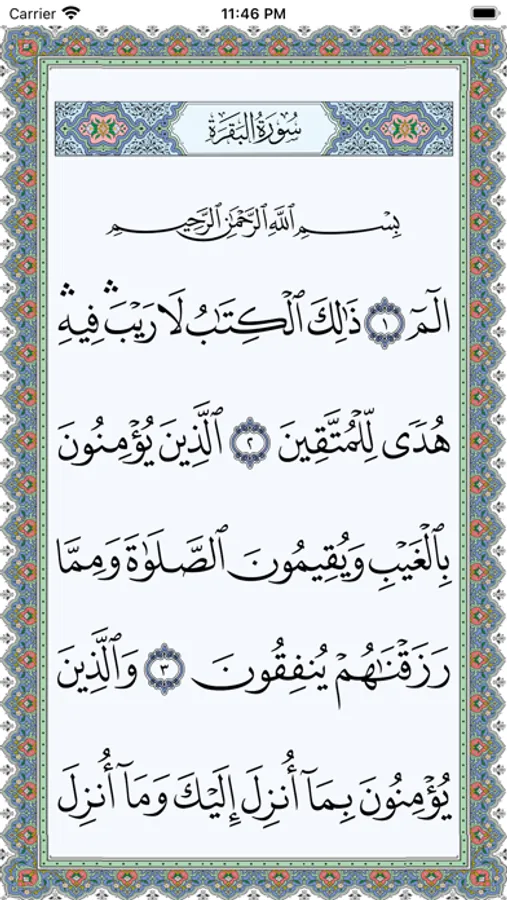 Carrier 11:46 PM
سُورَةُ البَقَرَةِ
بِسْمِ ٱللَّهِ ٱلرَّحْمَٰنِ ٱلرَّحِيمِ
الٓمٓ ١ ذَٰلِكَ ٱلْكِتَٰبُ لَا رَيْبَ ۛ فِيهِ ۛ
هُدًى لِّلْمُتَّقِينَ ٢ ٱلَّذِينَ يُؤْمِنُونَ
بِٱلْغَيْبِ وَيُقِيمُونَ ٱلصَّلَوٰةَ وَمِمَّا
رَزَقْنَٰهُمْ يُنفِقُونَ ٣ وَٱلَّذِينَ
يُؤْمِنُونَ بِمَآ أُنزِلَ إِلَيْكَ وَمَآ أُنزِلَ